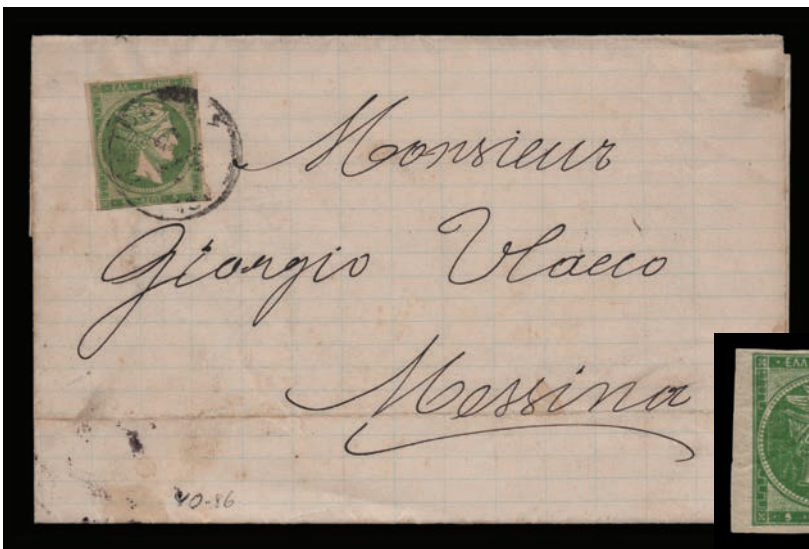 ΕΛΛ
Monsieur
Giorgio Vlacco
Messina
40-86
ΕΛΛ
5